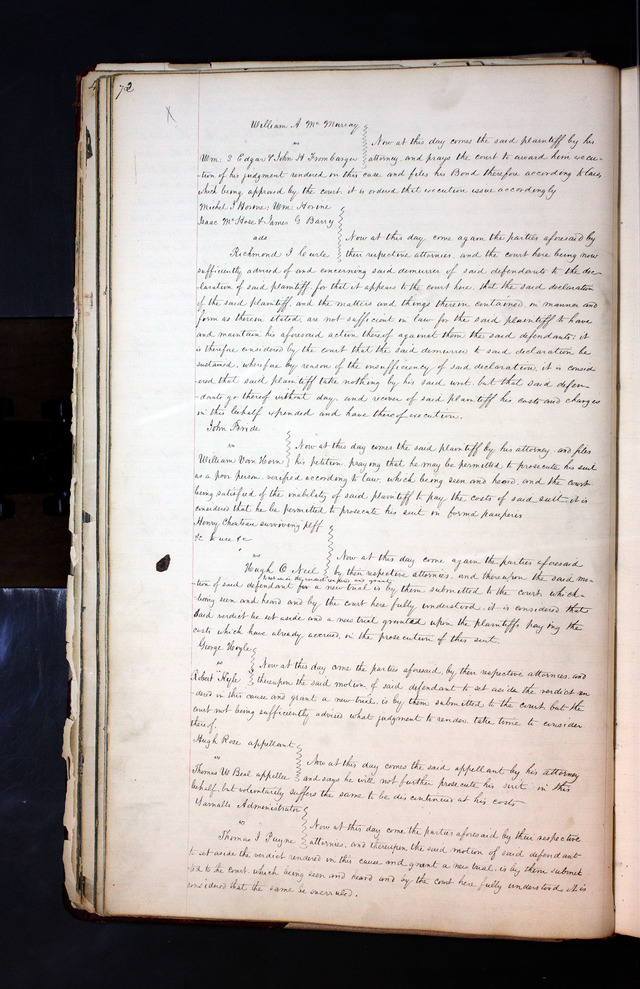 72
William A Mc Murray
vs
Wm: S Edgar & John H Frombarger
Now at this day comes the said plaintiff by his
attorney and prays the court to award him execu-
-tion of his judgment rendered on this case and files his Bond therefore according to law,
which being approved by the court. it is ordered that execution issue accordingly
Michel J Horine; Wm: Horine
Isaac Mc Hose & James G Barry
ads
Richmond J Curle
Now at this day come again the parties aforesaid by
their respective attornies, and the court here being now
sufficiently advised of and concerning said demurrer of said defendants to the dec-
laration of said plaintiff, for that it appears to the court here, that the said declaration
of the said plaintiff, and the matters and things therein contained in manner and
form as therein stated, are not sufficient in law for the said plaintiff to have
and maintain his aforesaid action thereof against them the said defendants; it
is therefore considered by the court that the said demurrer to said declaration be
sustained. wherefore by reason of the insufficiency of said declaration, it is consid-
ered that said plaintiff take nothing by his said writ. but that said defen-
-dants go thereof without day. and recover of said plaintiff his costs and charges
in this behalf expended and have thereof execution.
John Bride
vs
William Van Horn
Now at this day comes the said plaintiff by his attorney and files
his petition praying that he may be permitted to prosecute his suit
as a poor person. verified according to law; which being seen and heard, and the court
being satisfied of the inability of said plaintiff to pay the costs of said suit. it is
considered that he be permitted to prosecute his suit in formá pauperis
Henry Chouteau surviving plff
&c to use &c
vs
Hugh O Neel
Now at this day come again the parties aforesaid
by their respective attornies, and thereupon the said mo-
-tion of said defendant for a new trial is by them submitted to the court. which
being seen and heard and by the court here fully understood. it is considered that
said verdict be set aside and a new trial granted upon the plaintiffs paying the
costs which have already accrued in the prosecution of this suit.
George Hoyle
vs
Robert Kyle
Now at this day come the parties aforesaid, by their respective attornies and
thereupon the said motion of said defendant to set aside the verdict ren
dered in this cause and grant a new trial. is by them submitted to the court. but the
court not being sufficiently advised what judgment to render take time to consider
thereof.
Hugh Rose appellant
vs
Thomas W Beal appellee
Now at this day comes the said appellant by his attorney
and says he will not further prosecute his suit in this
behalf. but voluntarily suffers the same to be discontinued at his costs
Yarnalls Administrator
vs
Thomas J Payne
Now at this day come the parties aforesaid by their respective
attornies, and thereupon the said motion of said defendant
to set aside the verdict rendered in this cause and grant a new trial. is by them submit
ted to the court. which being seen and heard and by the court here fully understood. it is
considered that the same be overruled.